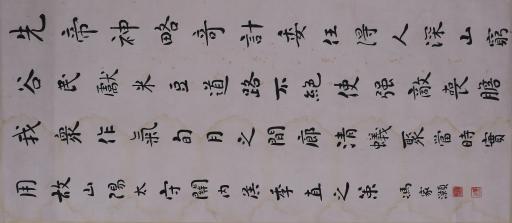 先帝神略奇計委任得人深山窮
谷民獻米豆道路不絕使强敵喪膽
我衆作氣旬月之間廓清蟻聚當時實
用故山陽太守關内侯季直之策 馮家灝